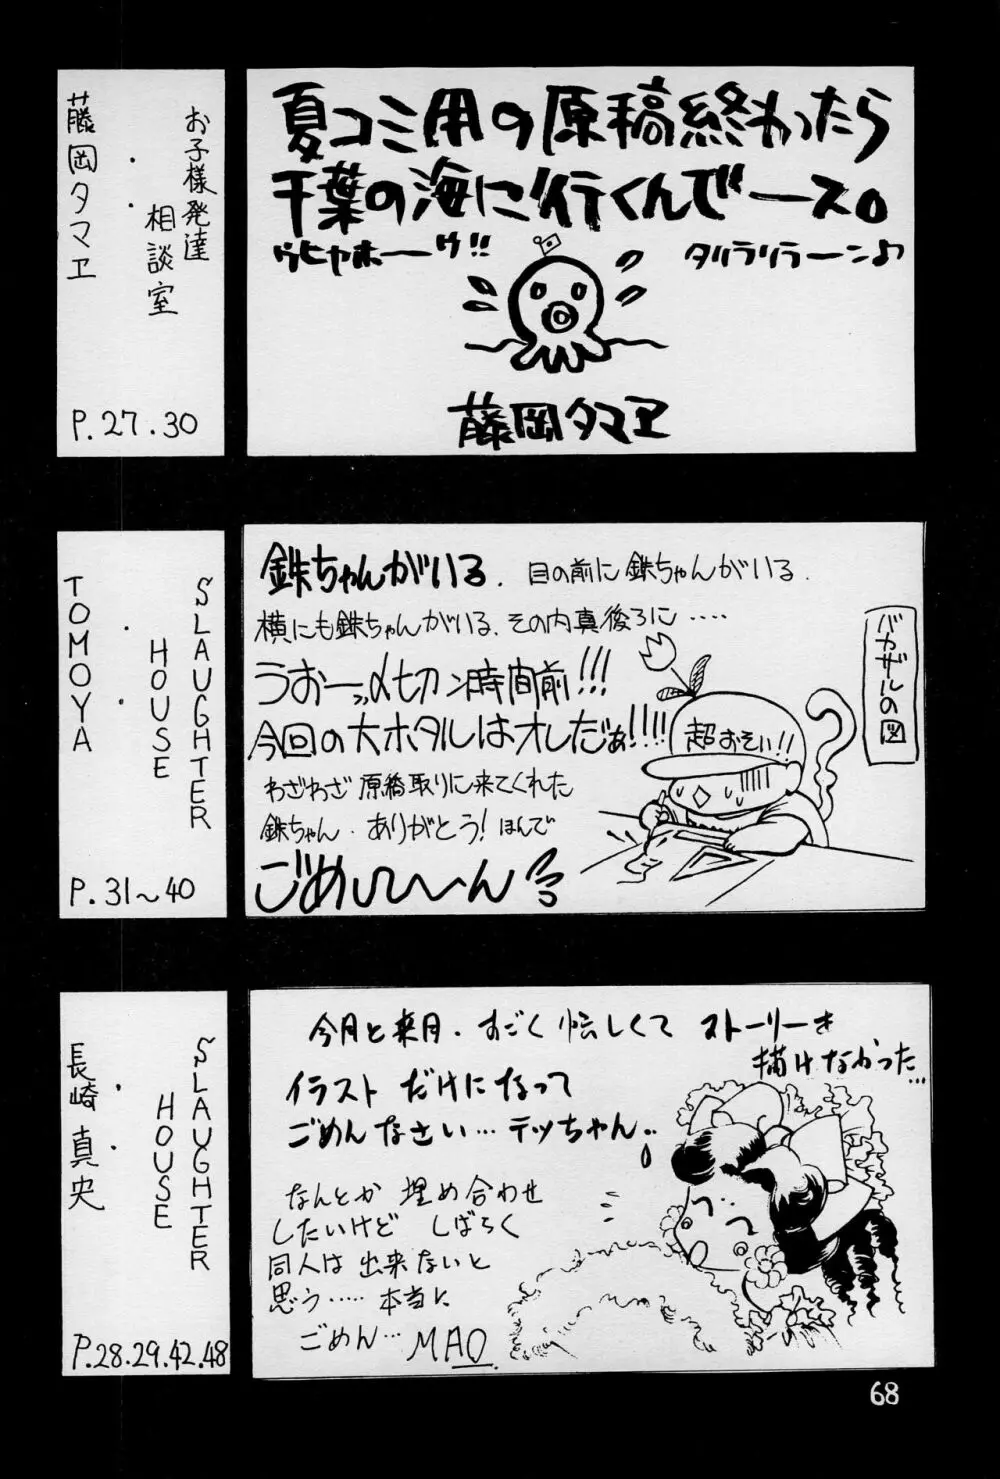 お子様発達
相談室
藤岡タマヱ
P.27.30
夏コミ用の原稿終わったら
千葉の海に行くんでース。
ウヒャホーーゥ!!
タリラリラーン♪
藤岡タマヱ
SLAUGHTER
HOUSE
TOMOYA
P.31~40
鉄ちゃんがいる. 目の前に鉄ちゃんがいる.
横にも鉄ちゃんがいる. その内真後ろに‥‥
うおーッ〆切ン時間前!!!
今回の大ホタルはオレだぁ!!!!
わざわざ原稿取りに来てくれた
鉄ちゃん. ありがとう! ほんで
ごめしぃ〜ん
超おそい!!
バカザルの図
SLAUGHTER
HOUSE
長崎真央
P.28.29.42.48
今月と来月. すごく忙しくて ストーリーき
描けなかった...
イラスト だけになって
ごめんなさい… テッちゃん..
なんとか 埋め合わせ
したいけど しばらく
同人は 出来ないと
思う‥‥‥本当に
ごめん… MAO
68